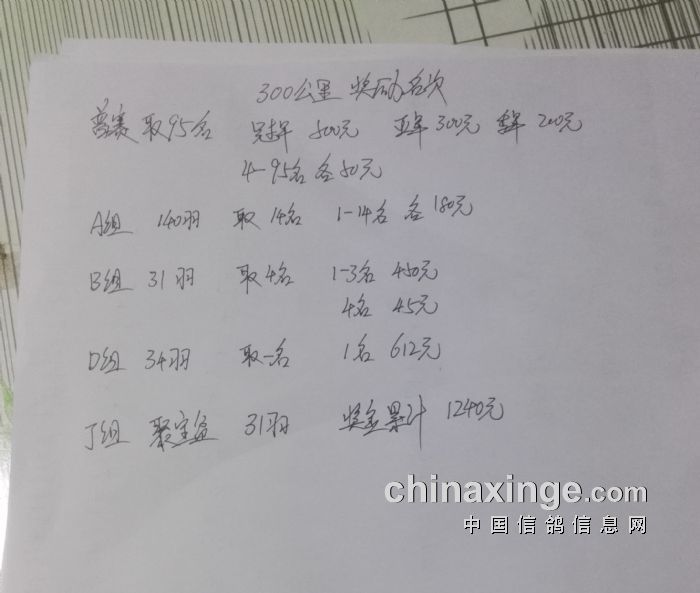 300公里 奖励名次
普赛 取95名 冠军 500元 亚军 300元 季军 200元
4-95名 各50元
A组 140羽 取14名 1-14名 各180元
B组 31羽 取4名 1-3名 450元
4名 45元
D组 34羽 取一名 1名 612元
J组 聚宝盆 31羽 奖金累计 1240元
chinaxinge.com
中国信鸽信息网